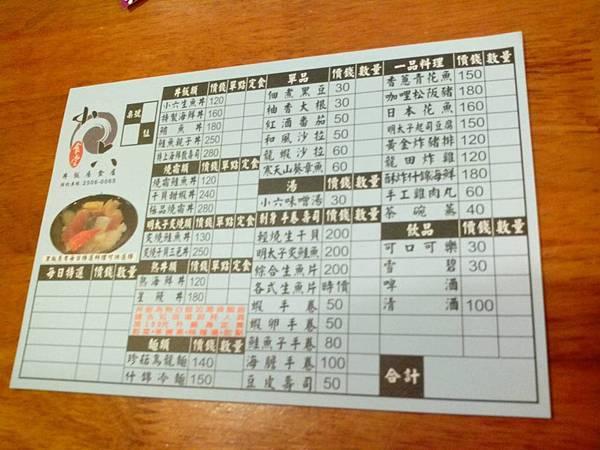 小六
食堂
丼飯居食屋
預約專線:2506-0063
桌號
位
每日特選 價錢 數量
丼飯類 價錢 單點 定食
小六生魚丼 120
特製海鮮丼 160
鮪魚丼 180
鮭魚親子丼 250
特上海鮮散壽司 280
燒霜類 價錢 單點 定食
燒霜鮭魚丼 120
干貝甜蝦丼 240
極品燒霜丼 280
明太子炙燒類 價錢 單點 定食
炙燒鮭魚丼 130
炙燒干貝三色丼 250
熱丼類 價錢 單點 定食
熱海鮮丼 120
星鰻丼 180
麵類 價錢 數量
珍菇烏龍麵 140
什錦冷麵 150
單品 價錢 數量
佃煮黑豆 30
柚香大根 30
紅酒番茄 50
和風沙拉 50
龍蝦沙拉 60
寒天山葵章魚 60
湯 價錢 數量
小六味噌湯 30
刺身手卷壽司 價錢 數量
輕燒生干貝 200
明太子炙鮭魚 200
綜合生魚片 200
各式生魚片 時價
蝦手卷 50
蝦卵手卷 50
鮭魚子手卷 80
海膽手卷 100
豆皮壽司 50
一品料理 價錢 數量
香蔥青花魚 150
咖哩松阪豬 180
日本花魚 160
明太子起司豆腐 150
黃金炸豬排 120
龍田炸雞 120
酥炸什錦海鮮 180
手工雞肉丸 60
茶碗蒸 40
飲品 價錢 數量
可口可樂 30
雪碧 30
啤酒
清酒 100
合計